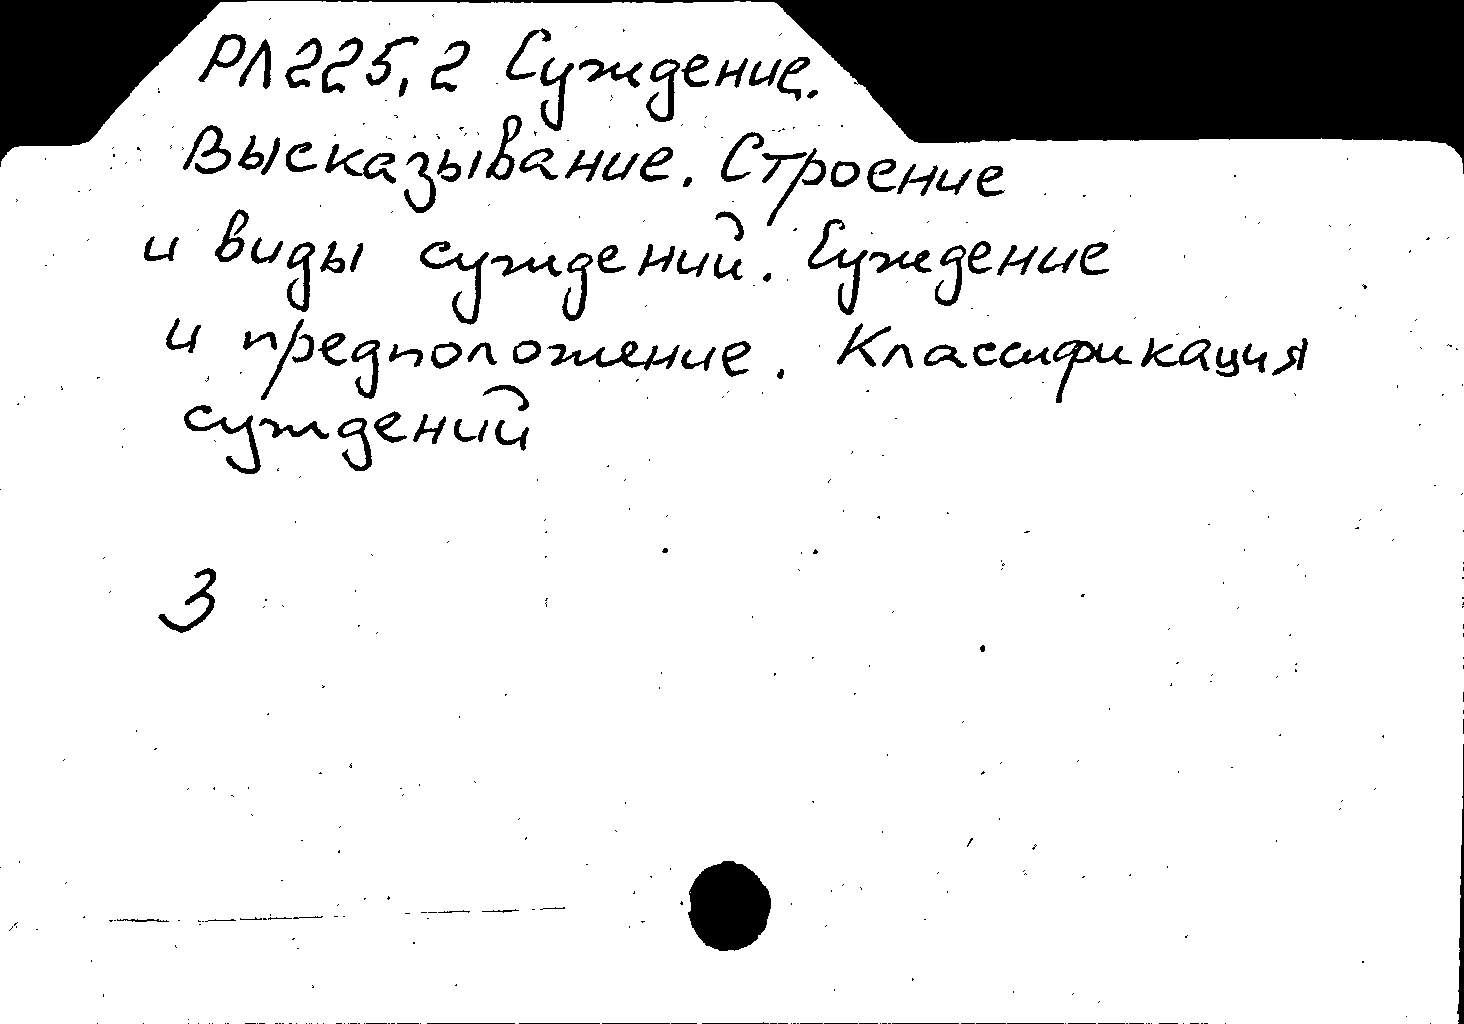 РЛ225,2 Суждение.
Высказывание. Строение
и виды суждений. Суждение
и предположение. Классификация
суждений
3